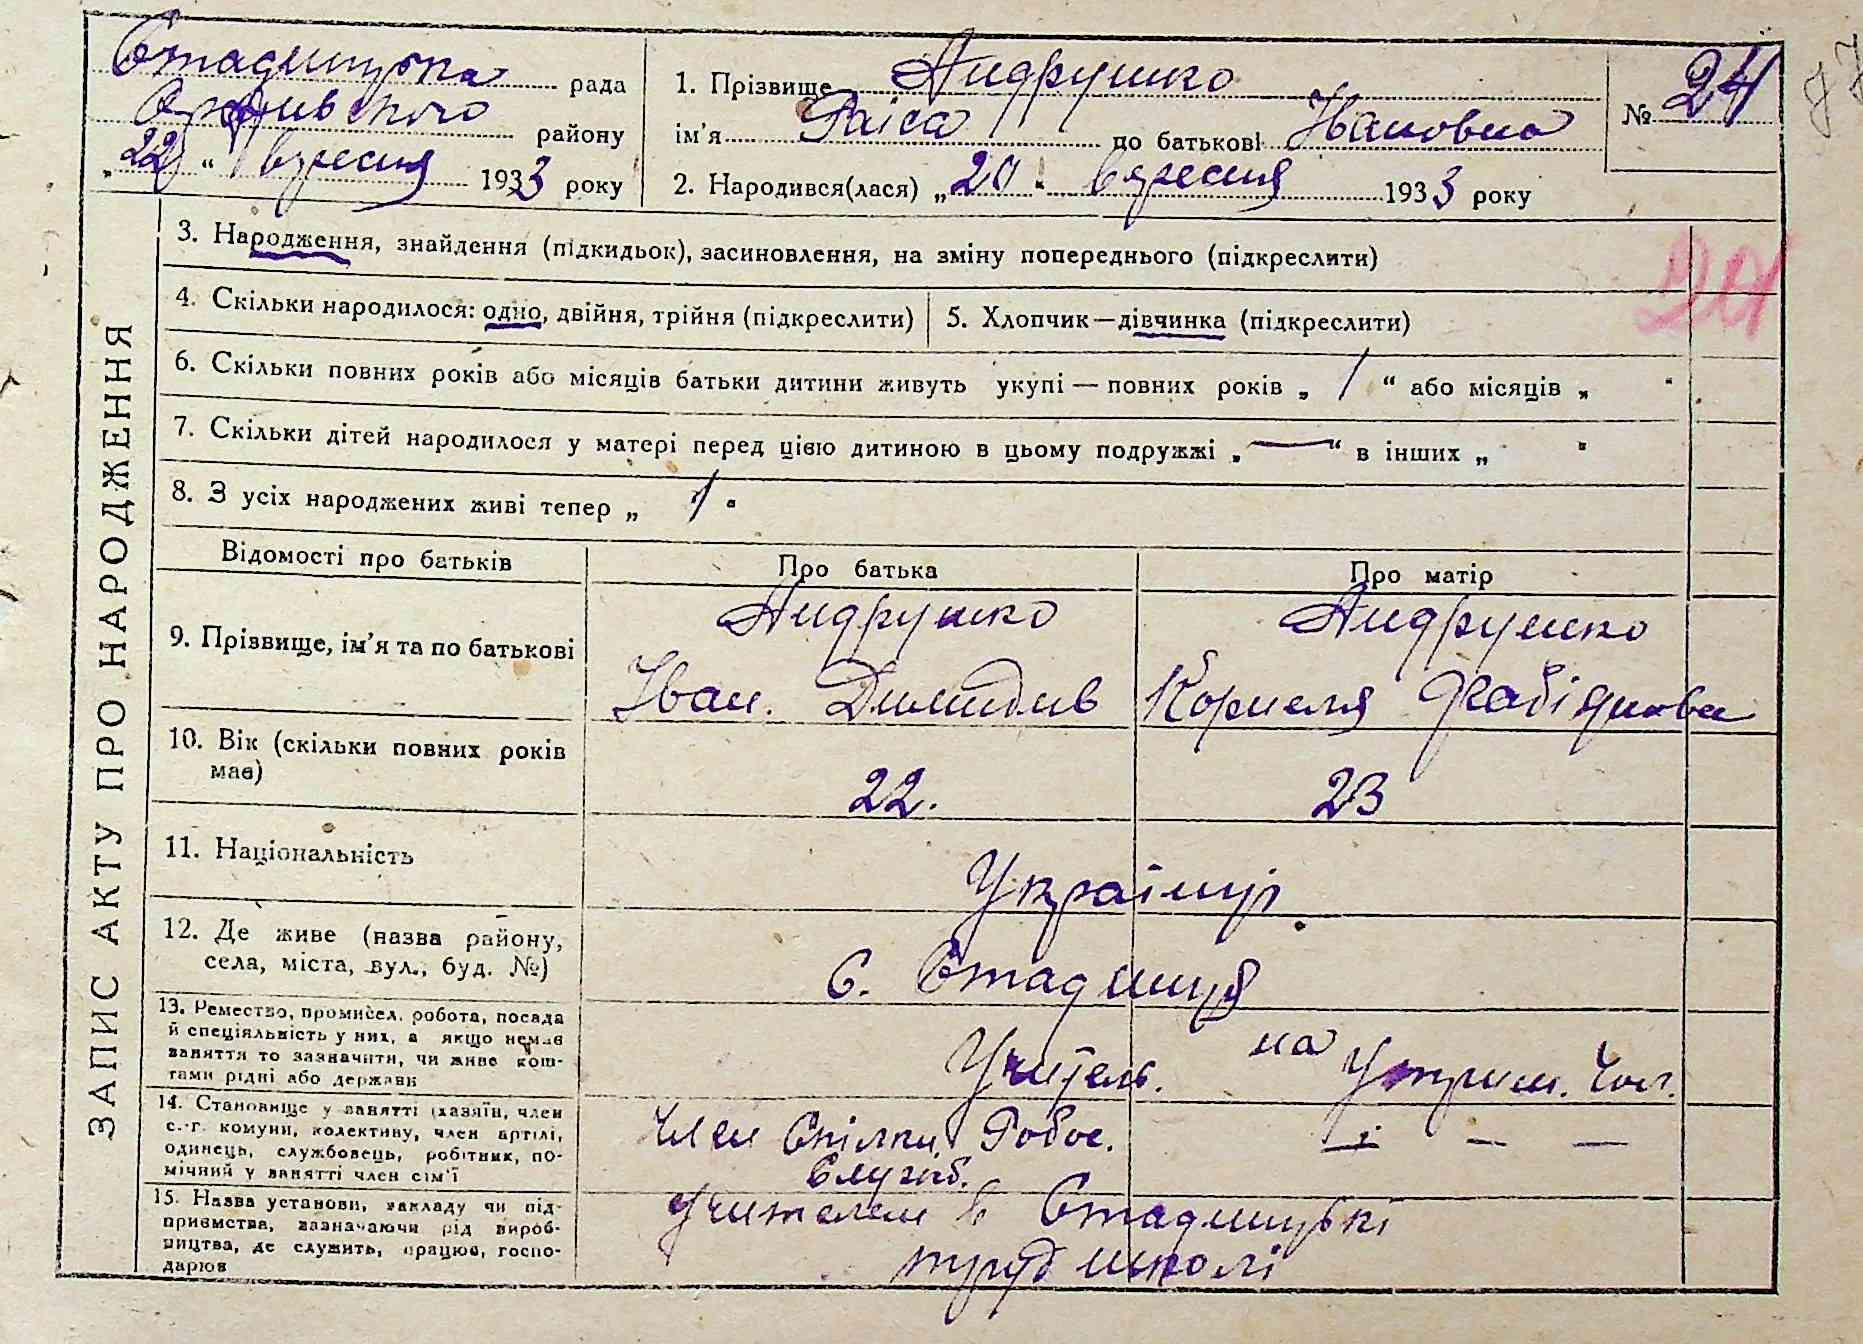 Стадницька рада
району
„22“ вересня 1933 року
1. Прізвище Андрушко
ім'я Раїса до батькові Івановна
2. Народився(лася) „20“ вересня 1933 року
№ 24
ЗАПИС АКТУ ПРО НАРОДЖЕННЯ
3. Народження, знайдення (підкидьок), засиновлення, на зміну попереднього (підкреслити)
24
4. Скільки народилося: одно, двійня, трійня (підкреслити)
5. Хлопчик—дівчинка (підкреслити)
6. Скільки повних років або місяців батьки дитини живуть укупі — повних років „ 1 “ або місяців „ “
7. Скільки дітей народилося у матері перед цією дитиною в цьому подружжі „ — “ в інших „ “
8. З усіх народжених живі тепер „ 1 “
Відомості про батьків
Про батька
Про матір
9. Прізвище, ім'я та по батькові
Андрушко
Іван.
Андрушко
Корнеля
10. Вік (скільки повних років
має)
22.
23
11. Національність
Українці
12. Де живе (назва району,
села, міста, вул., буд. №)
С. Стадниця
13. Ремество, промисел, робота, посада
й спеціяльність у них, а якщо немає
заняття то зазначити, чи живе кош-
тами рідні або держави
Учитель.
на Утрим. чол.
14. Становище у занятті (хазяїн, член
с.-г. комуни, колективу, член артілі,
одинець, службовець, робітник, по-
мічний у занятті член сім'ї
Член Спілки Робос.
— — —
15. Назва установи, закладу чи під-
приємства, зазначаючи рід вироб-
ництва, де служить, працює, госпо-
дарює
Учителем в Стадницькі
школі